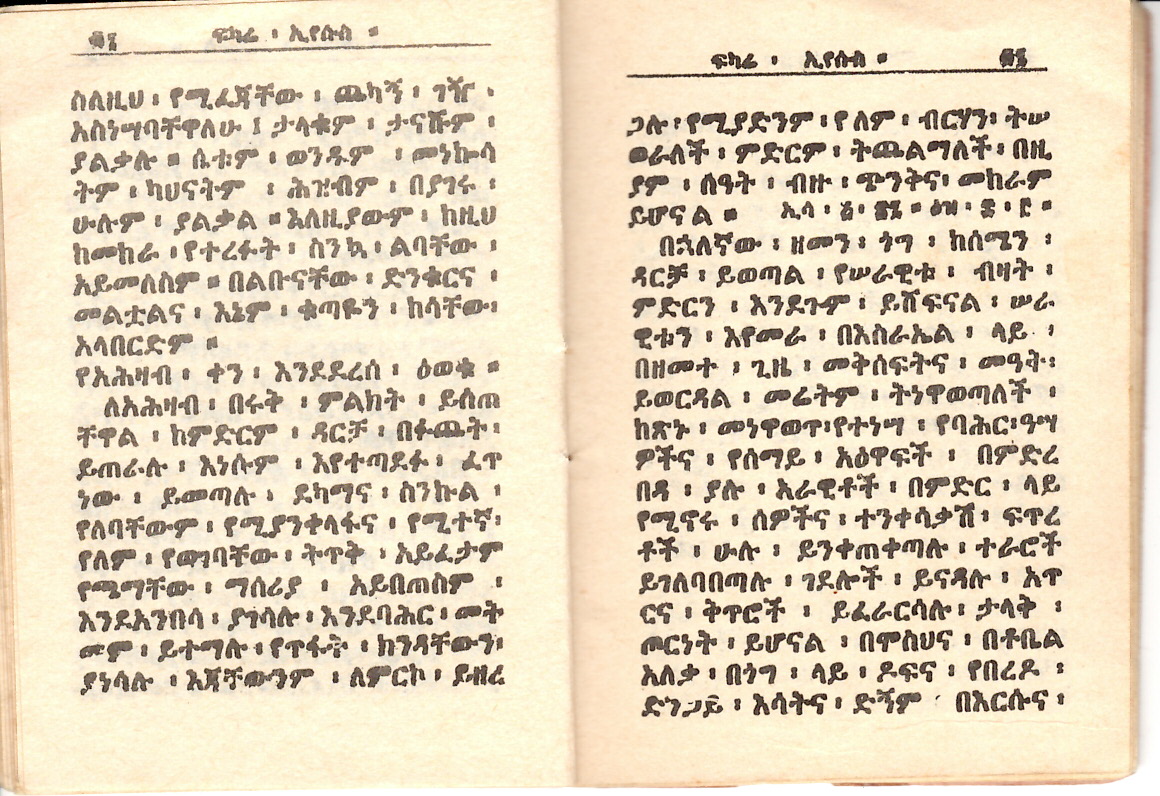 ፍካሬ ፡ ኢየሱስ ።
ስለዚህ ፡ የሚፈጃቸው ፡ ጨካኝ ፡ ገዥ ፡
አስነሣባቸዋለሁ ፤ ታላቁም ፡ ታናሹም ፡
ያልቃሉ ። ሴቱም ፡ ወንዱም ፡ መነኰሳ
ትም ፡ ካህናትም ፡ ሕዝብም ፡ በያገሩ ፡
ሁሉም ፡ ያልቃል ። እለዚያውም ፡ ከዚህ
ከመከራ ፡ የተረፉት ፡ ስንኳ ፡ ልባቸው ፡
አይመለስም ። በልቡናቸው ፡ ድንቁርና ፡
መልቷልና ፡ እኔም ፡ ቁጣዬን ፡ ከሳቸው፡
አላበርድም ።
የአሕዛብ ፡ ቀን ፡ እንደደረሰ ፡ ዕወቁ ።
ለአሕዛብ ፡ በሩቅ ፡ ምልክት ፡ ይሰጠ
ቸዋል ፡ ከምድርም ፡ ዳርቻ ፡ በፉጨት ፡
ይጠራሉ ፡ እነሱም ፡ እየተጣደፉ ፡ ፈጥ
ነው ፡ ይመጣሉ ፡ ደካማና ፡ ስንኩል ፡
የለባቸውም ፡ የሚያንቀላፋና ፡ የሚተኛ፡
የለም ፡ የወገባቸው ፡ ትጥቅ ፡ አይፈታም
የጫማቸው ፡ ማሰሪያ ፡ አይበጠስም ፡
እንደአንበሳ ፡ ያገሳሉ ፡ እንደባሕር ፡ መት
መም ፡ ይተማሉ ፡ የጥፋት ፡ ክንዳቸውን፡
ያነሳሉ ፡ እጃቸውንም ፡ ለምርኮ ፡ ይዘረ
ፍካሬ ፡ ኢየሱስ ።
ጋሉ ፡ የሚያድንም ፡ የለም ፡ ብርሃን፡ ትሠ
ወራለች ፡ ምድርም ፡ ትጨልማለች ፡ በዚ
ያም ፡ ሰዓት ፡ ብዙ ፡ ጭንቅና፡ መከራም
ይሆናል ። ኢሳ ፡
በኋለኛው ፡ ዘመን ፡ ጎግ ፡ ከሰሜን ፡
ዳርቻ ፡ ይወጣል ፡ የሠራዊቱ ፡ ብዛት ፡
ምድርን ፡ እንደጉም ፡ ይሸፍናል ፡ ሠራ
ዊቱን ፡ እየመራ ፡ በእስራኤል ፡ ላይ ፡
በዘመተ ፡ ጊዜ ፡ መቅሰፍትና ፡ መዓት፡
ይወርዳል ፡ መሬትም ፡ ትነዋወጣለች ፡
ከጽኑ ፡ መነዋወጥ፡የተነሣ ፡ የባሕር፡ዓሣ
ዎችና ፡ የሰማይ ፡ አዕዋፍች ፡ በምድረ
በዳ ፡ ያሉ ፡ አራዊቶች ፡ በምድር ፡ ላይ
የሚኖሩ ፡ ሰዎችና ፡ ተንቀሳቃሽ ፡ ፍጥረ
ቶች ፡ ሁሉ ፡ ይንቀጠቀጣሉ ፡ ተራሮች
ይገለባበጣሉ ፡ ገደሎች ፡ ይናዳሉ ፡ አጥ
ርና ፡ ቅጥሮች ፡ ይፈራርሳሉ፡ ታላቅ ፡
ጦርነት ፡ ይሆናል ፡ በሞስህና ፡ በቶቤል
አለቃ ፡ በጎግ ፡ ላይ ፡ ዶፍና ፡ የበረዶ ፡
ድንጋይ ፡ እሳትና ፡ ድኝም ፡ በእርሱና ፡